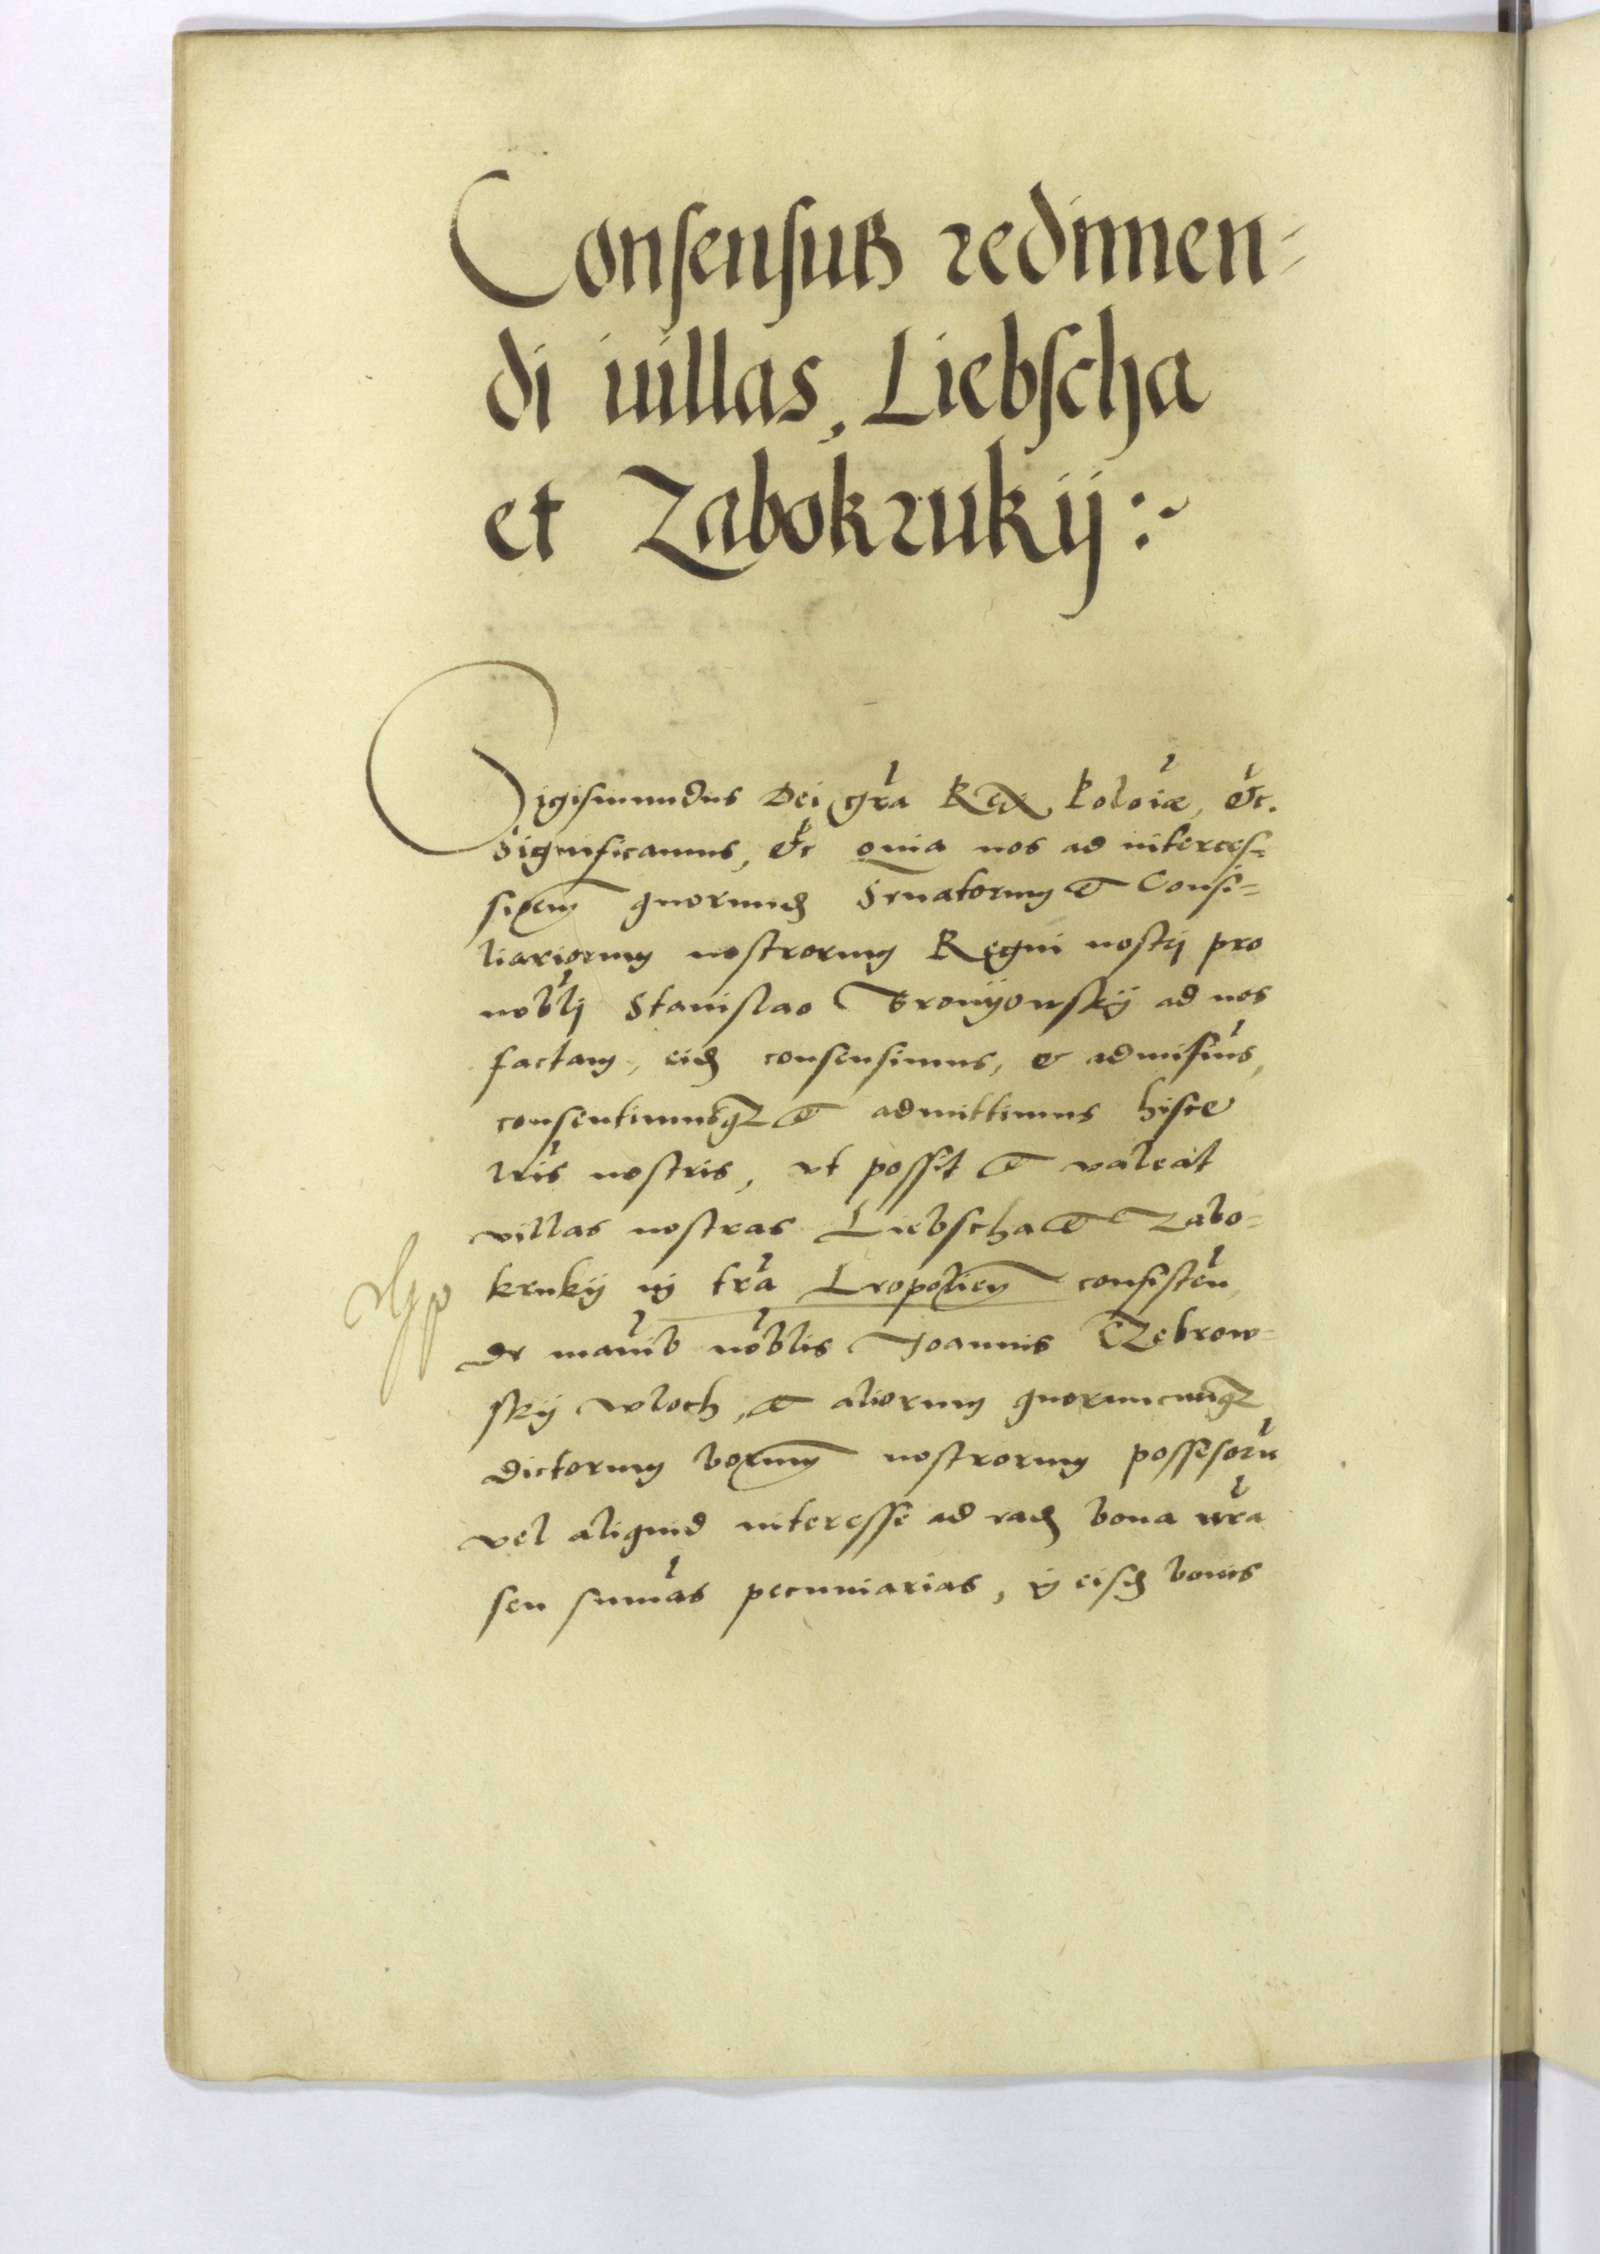 Consensus redimen=
di uillas, Liebscha
et Zabokrukij :~
Sigismundus Dei gra Rex Poloiæ, etc.
Significamus, etc quia nos ad interces=
sioem quorund Senatorum et Consi=
liariorum nostrorum Regni nostrj pro
noblj Stanislao ad nos
factam, eid consensimus, et admisius,
consentimusq et admittimus hisce
lris nostris, vt possit et valeat
villas nostras Liebscha et Zabo=
krukij in tra Leopolien consisten,
de manib noblis Joannis Zebrow=
skij Wloch, et aliorum quorumcunq
dictorum bonorum nostrorum possesoru
vel aliquid interesse ad ead bona nra
seu sumas pecuniarias, in eisd bonis